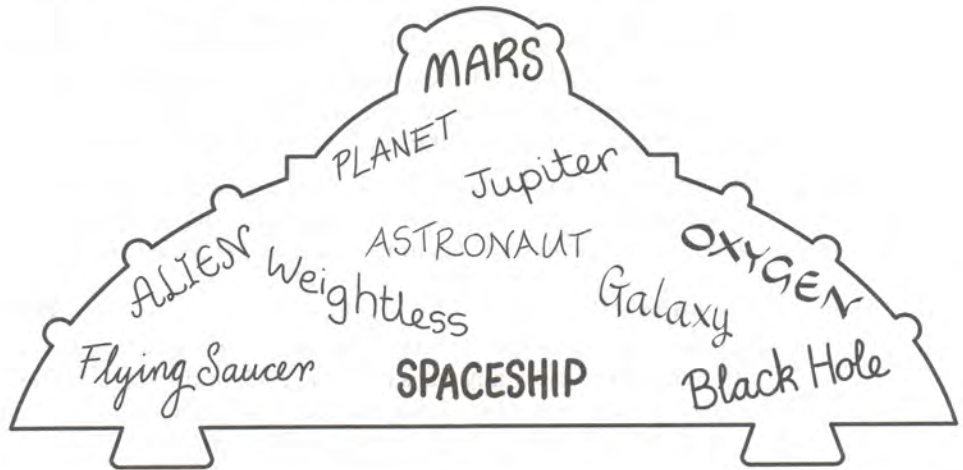 MARS
PLANET
Jupiter
ASTRONAUT
OXYGEN
ALIEN
Weightless
Galaxy
Flying Saucer
SPACESHIP
Black Hole